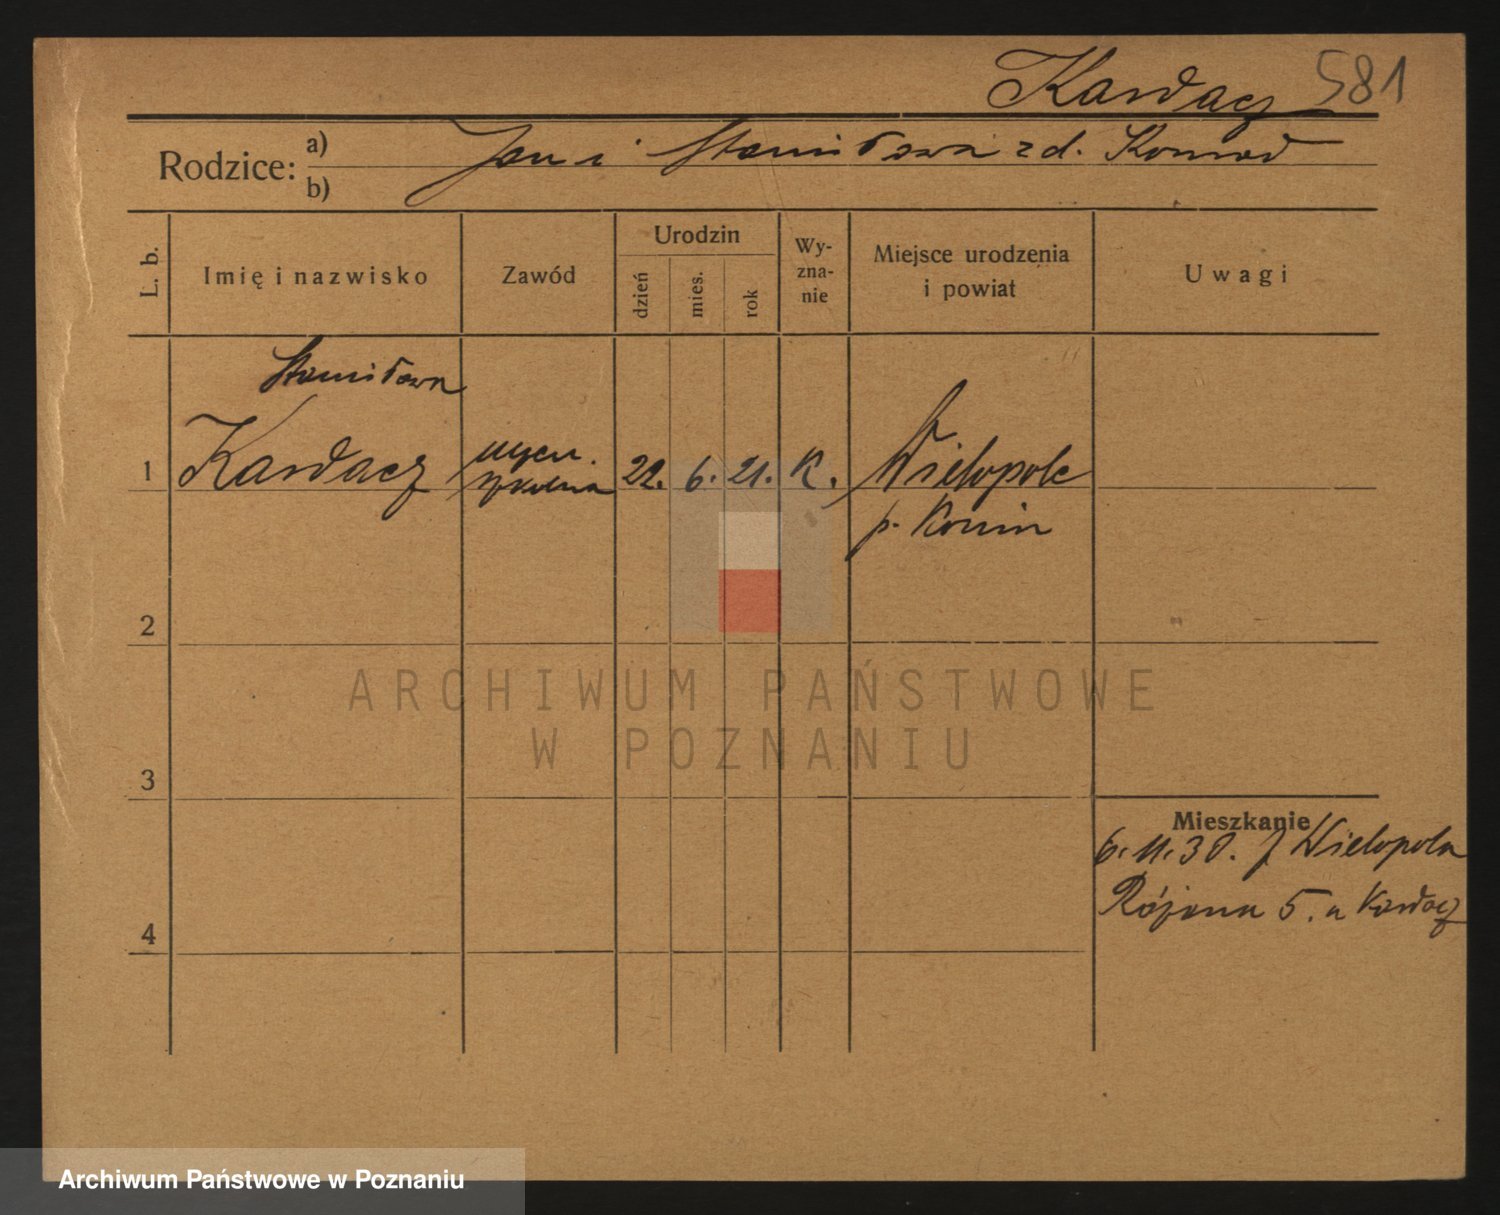 Kardacz 581
Rodzice: a) Jan i Stanisława z d. Konrad
b)
L. b.
Imię i nazwisko
Zawód
Urodzin
dzień
mies.
rok
Wy-
zna-
nie
Miejsce urodzenia
i powiat
Uwagi
Stanisława
1 Kardacz
ucz.
szkolna
22. 6. 21. K. Wielopole
p. Konin
2
3
4
Mieszkanie
6.11.30. z Wielopola
Różana 5. u Kardacz
ARCHIWUM PAŃSTWOWE
W POZNANIU
Archiwum Państwowe w Poznaniu